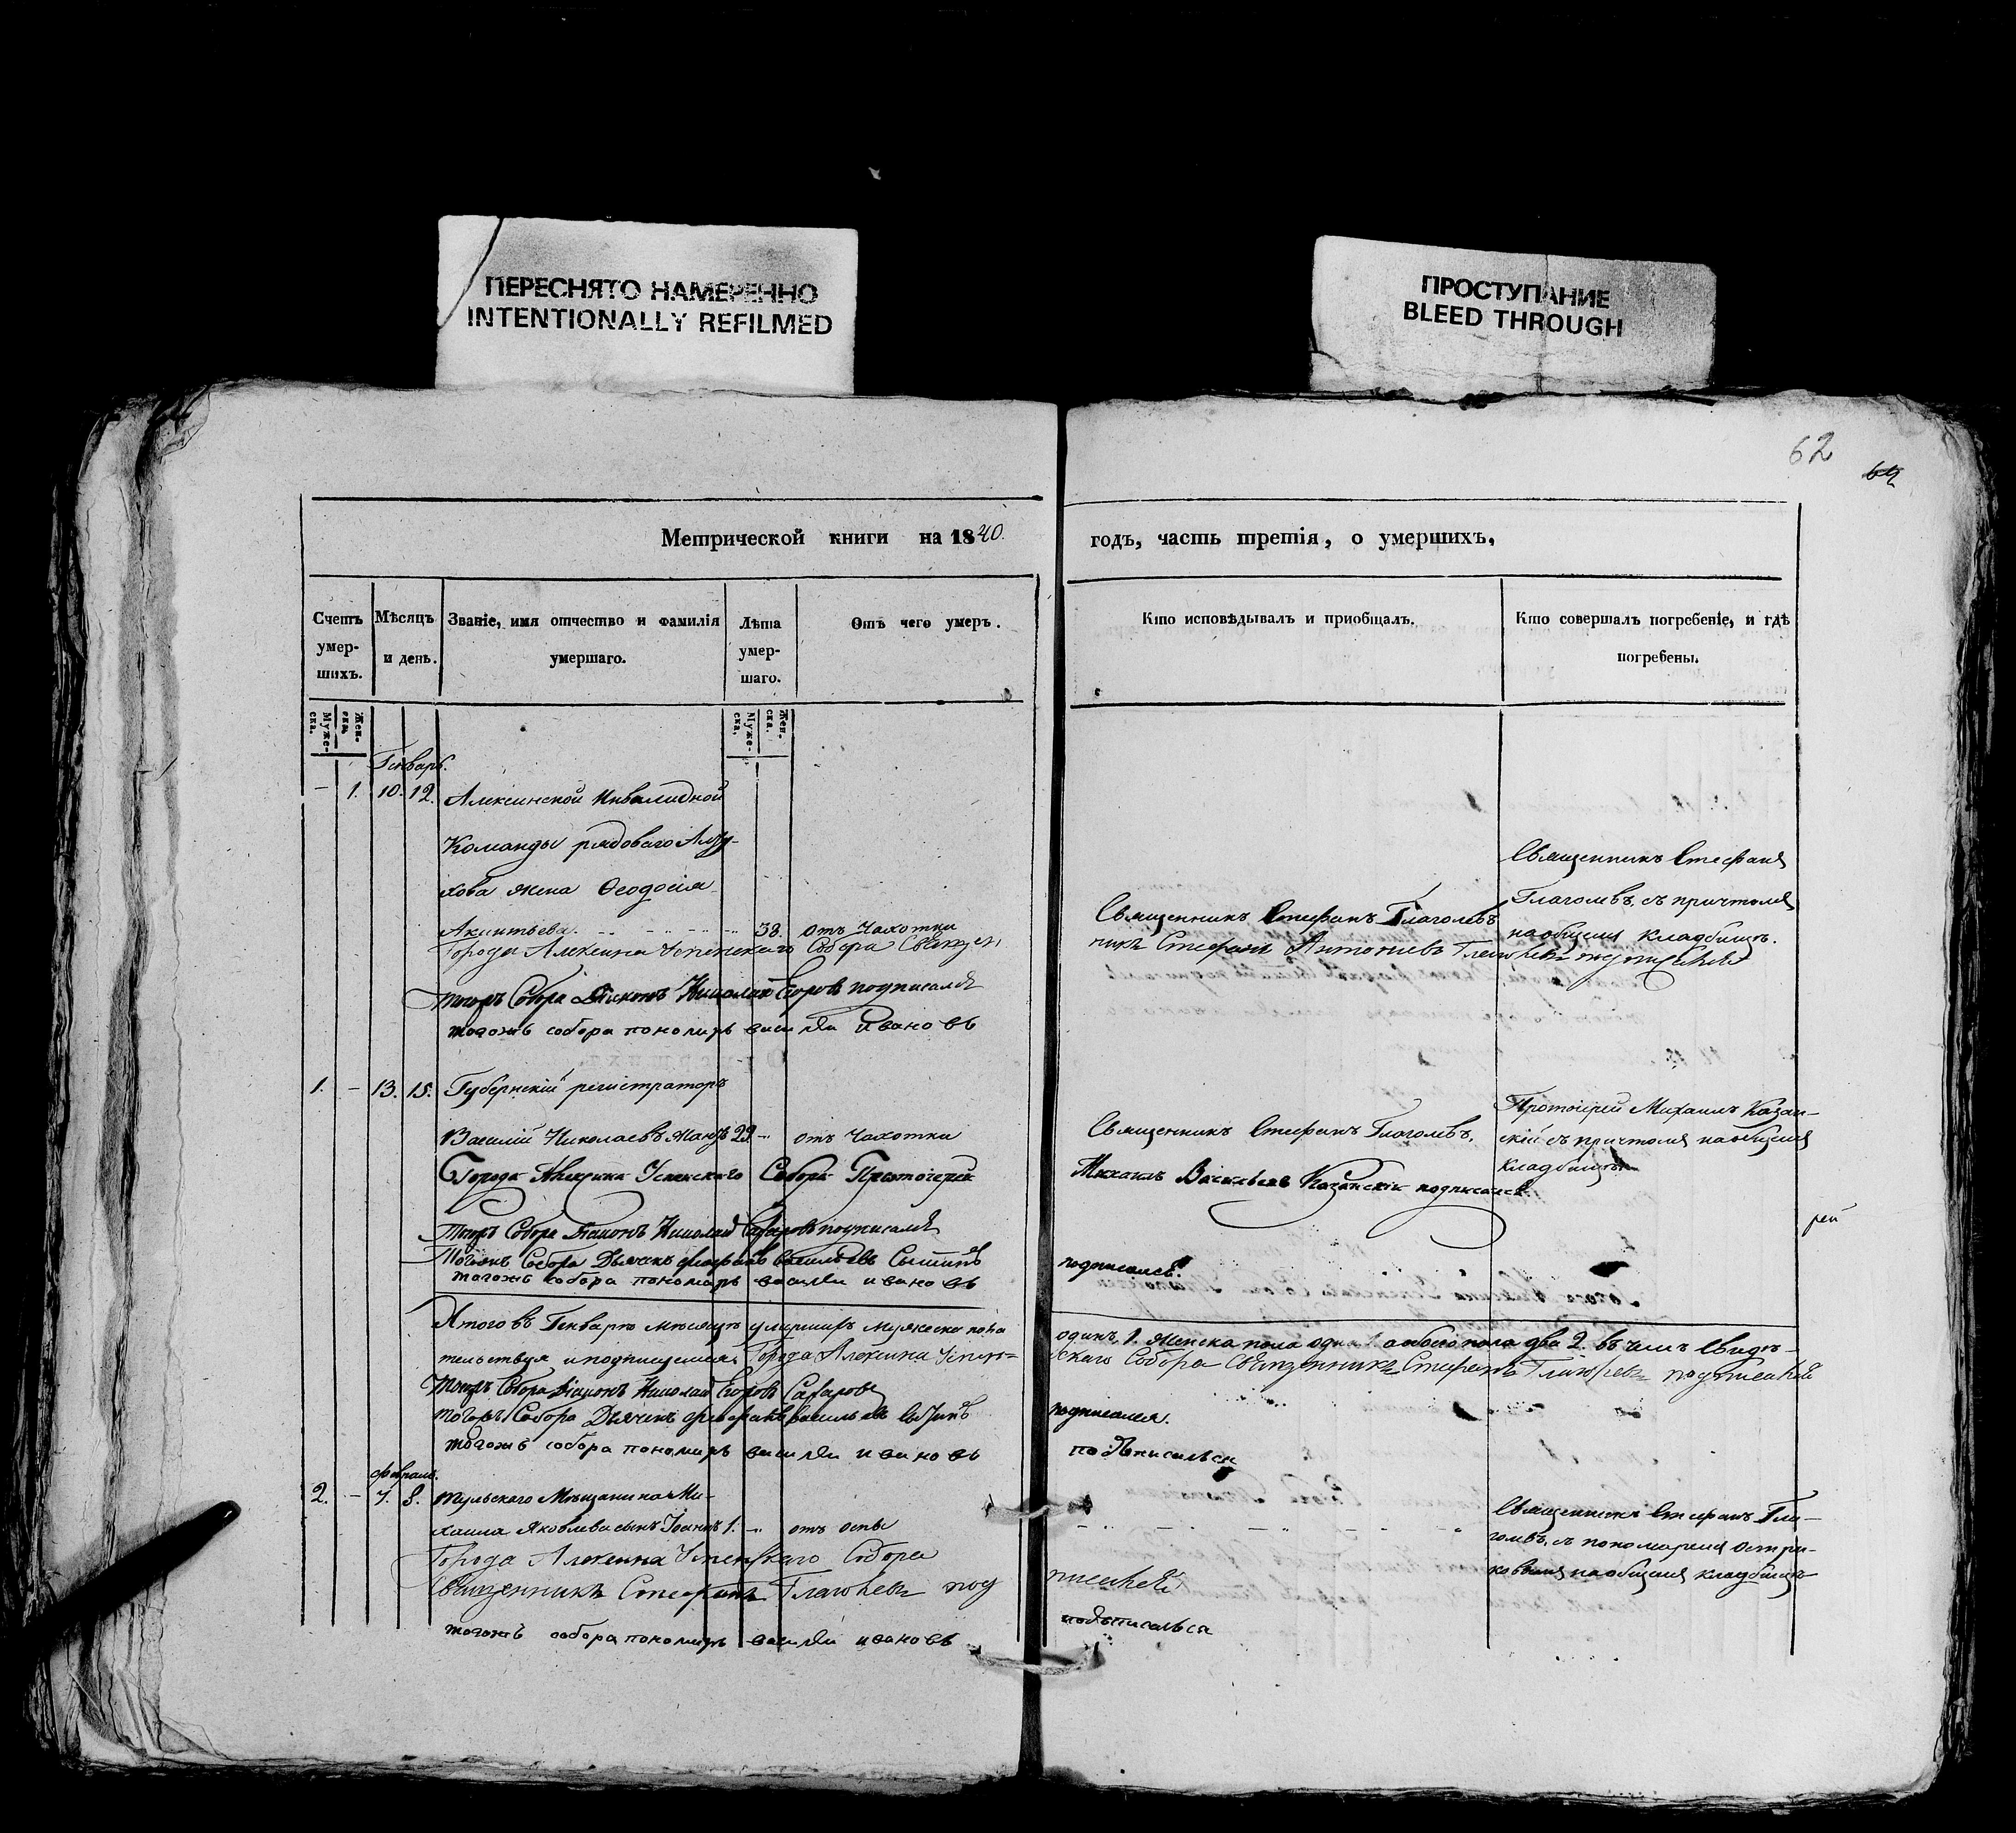 ПЕРЕСНЯТО НАМЕРЕННО
INTENTIONALLY REFILMED
ПРОСТУПАНИЕ
BLEED THROUGH
62
Метрической книги на 1840.
годъ, часть третія, о умершихъ.
Счетъ умер-шихъ.
Мѣсяцъ и день.
Званіе, имя отчество и фамилія умершаго.
Лѣта умер-шаго.
Отъ чего умеръ.
Кто исповѣдывалъ и приобщалъ.
Кто совершалъ погребеніе, и гдѣ погребены.
Муже-ска.
Жен-ска.
Муже-ска.
Жен-ска.
Генварь.
– 1. 10. 12. Алексинской Инвалидной
Команды рядоваго
хова жена Ѳеодосія
Акинтьева. 38. отъ Чахотки
Священникъ Стефанъ Глаголевъ
Священникъ Стефанъ
Глаголевъ, съ причтомъ
на общемъ кладбищѣ.
Города Алексина Успенскаго Собора Священ
никъ Стефанъ Антониевъ Глаголевъ подписался
Тогоръ Собора Діаконъ Николай Егоровъ подписался
тогожъ собора пономарь василей ивановъ
1. – 13. 15. Губернскій регистраторъ
Василій Николаевъ 29 – отъ Чахотки
Священникъ Стефанъ Глаголевъ.
Протоіерей Михаилъ Казан-
скій съ причтомъ на общемъ
кладбищѣ
Города Алексина Успенскаго Собора Протоіерей
Михаилъ Васильевъ Казанскій подписался.
рей
Тогоръ Собора Діаконъ Николай Сахаровъ подписался
Тогожъ Собора Дьячекъ васильевъ
подписался.
тогожъ собора пономарь василей ивановъ
Итого въ Генварѣ мѣсяцѣ умершихъ мужеска пола
одинъ, 1. женска пола одна 1. а обоего пола два 2. въ чемъ свидѣ-
тельствуя и подписуемся. Города Алексина Успен=
скаго Собора Священникъ Стефанъ Глаголевъ подписался
Тогоръ Собора Діаконъ Николай Егоровъ Сахаровъ
Тогожъ Собора Дьячекъ васильевъ
подписался.
тогожъ собора пономарь василей ивановъ
подъписалься
Февраль.
2. – 7. 8. Тульскаго Мѣщанина Ми-
хаила Яковлева сынъ Іоаннъ 1. – отъ оспы
Священникъ Стефанъ Гла-
голевъ, съ пономаремъ Остри-
ковымъ на общемъ кладбищѣ
Города Алексина Успенскаго Собора
Священникъ Стефанъ Глаголевъ под
писался
тогожъ собора пономарь василей ивановъ
подъписалься